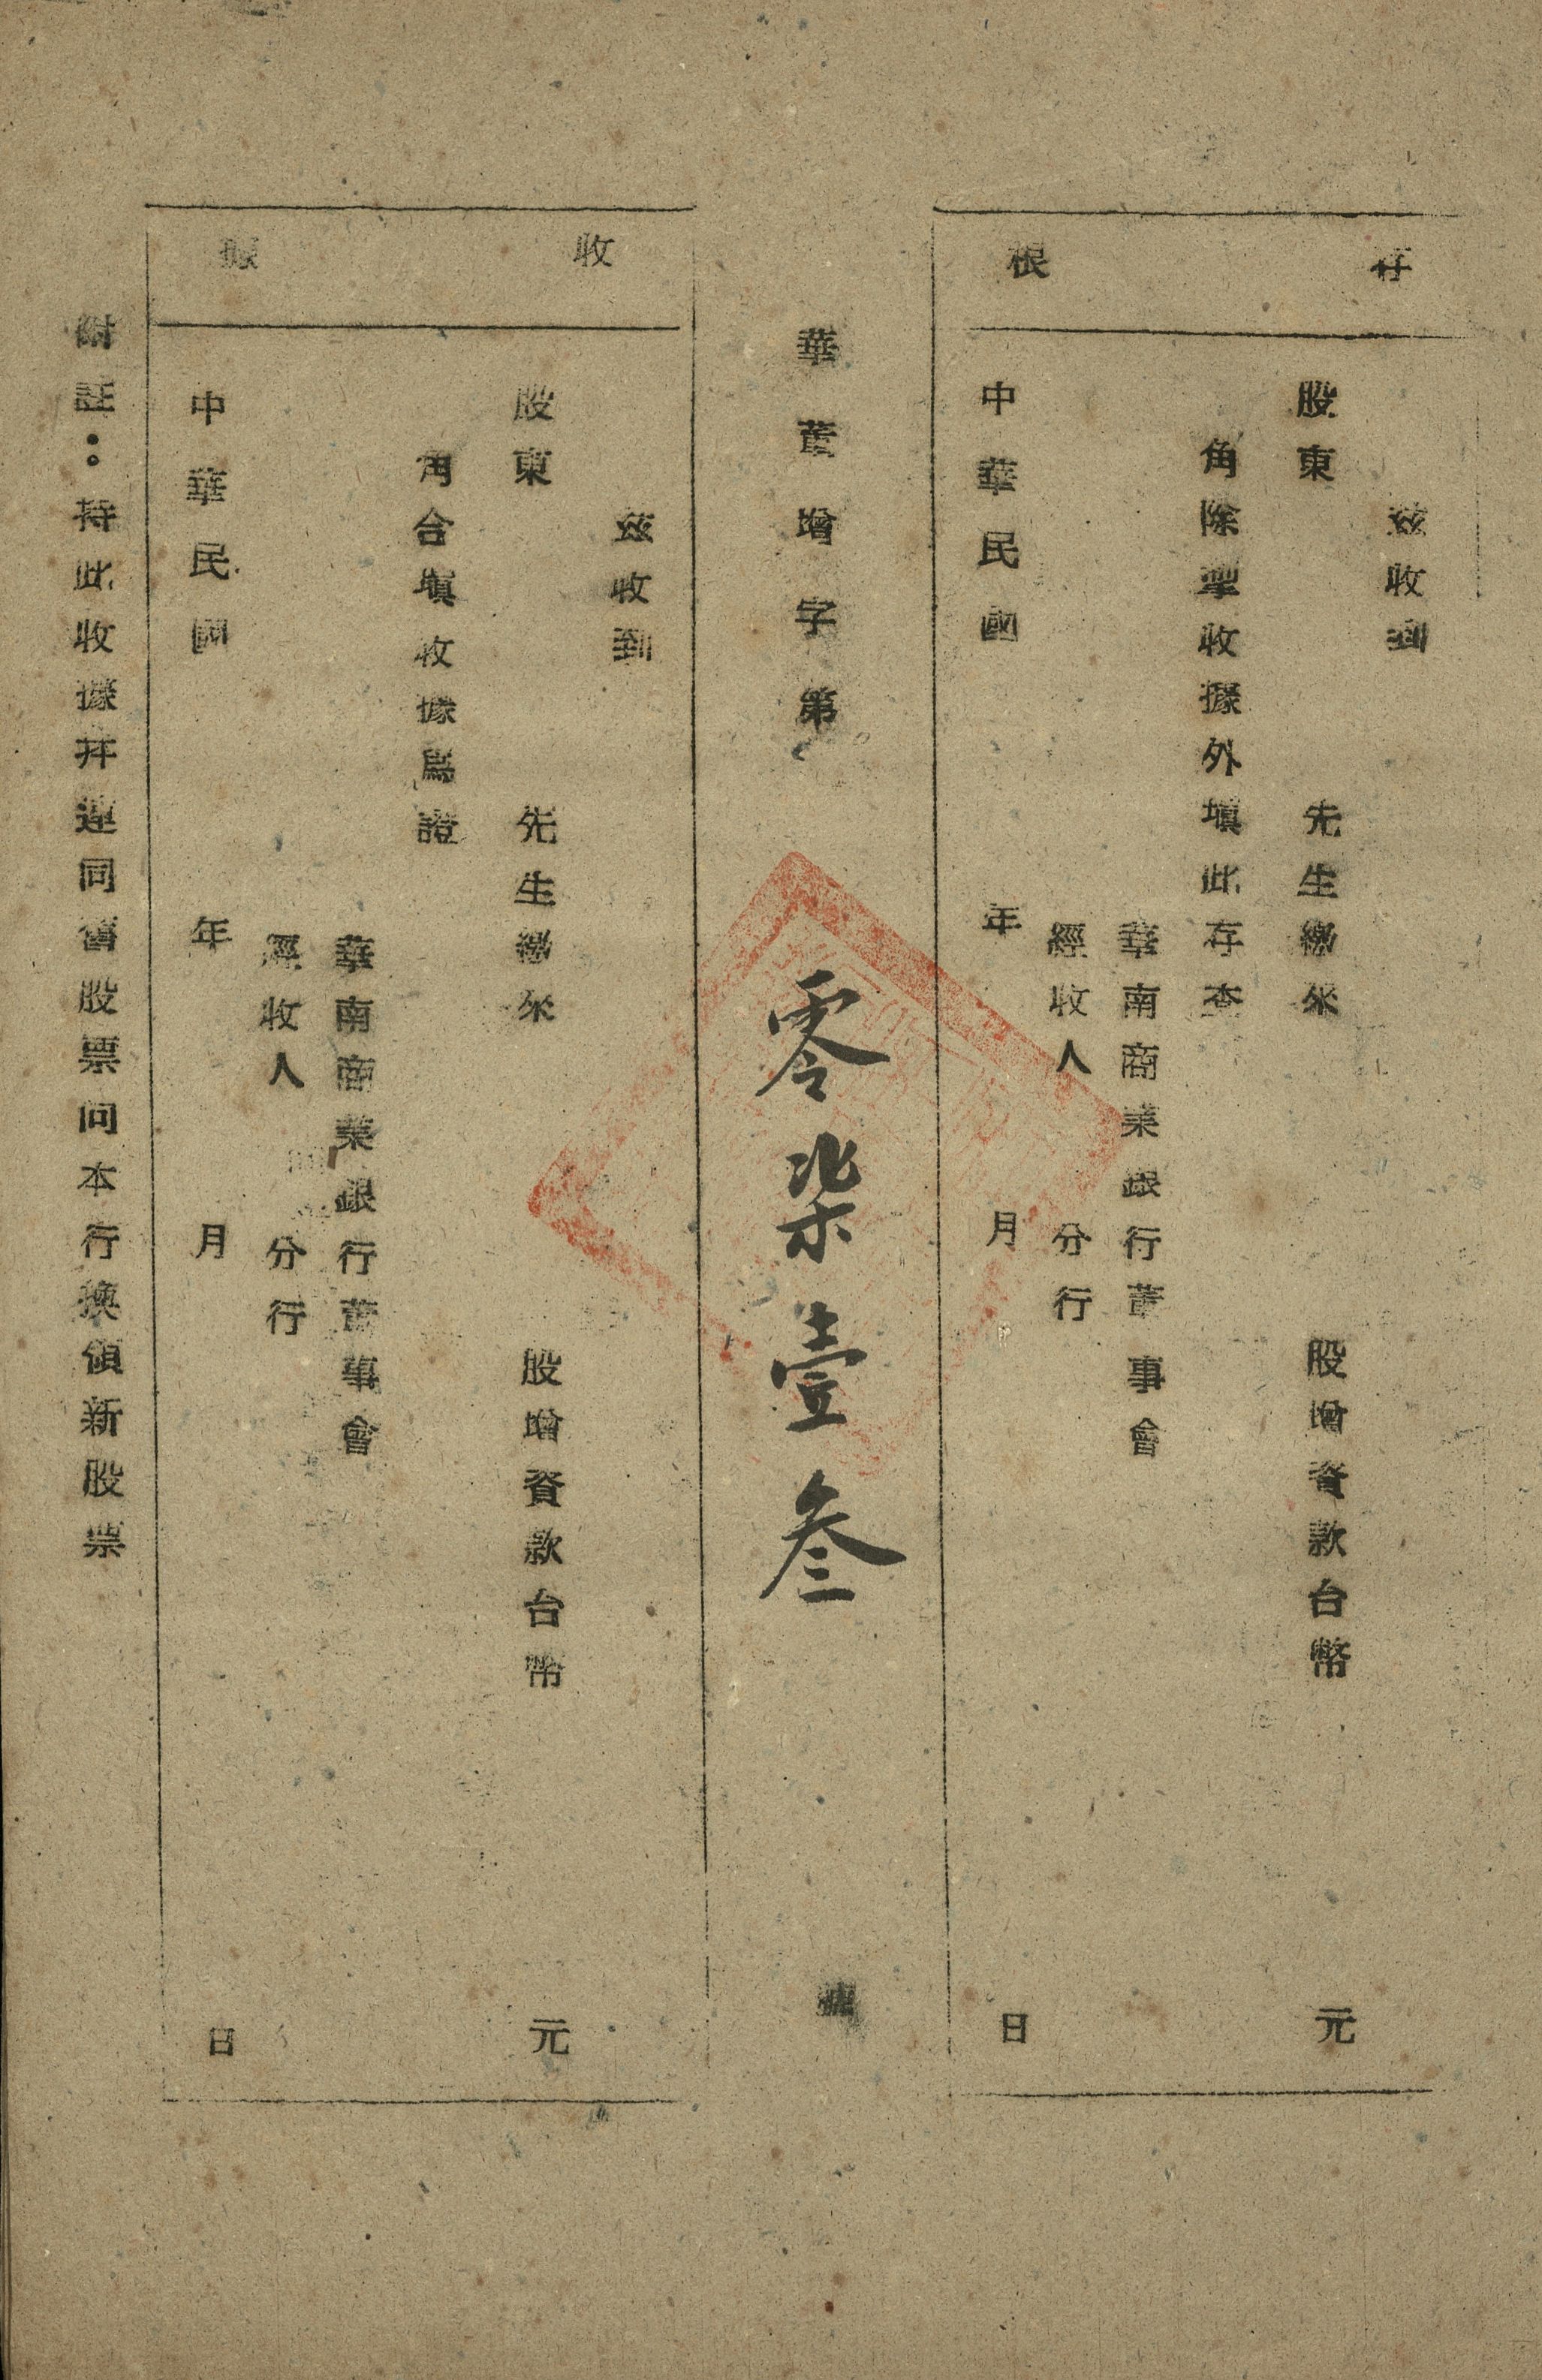 存根
茲收到
股東 先生繳來 股增資款台幣 元
角除掣收據外填此存查
華南商業銀行董事會
經收人 分行
中華民國 年 月 日
華董增字第 零柒壹叁 號
收據
茲收到
股東 先生繳來 股增資款台幣 元
角合塡收據爲證
華南商業銀行董事會
經收人 分行
中華民國 年 月 日
附註：持此收據並連同舊股票向本行換領新股票